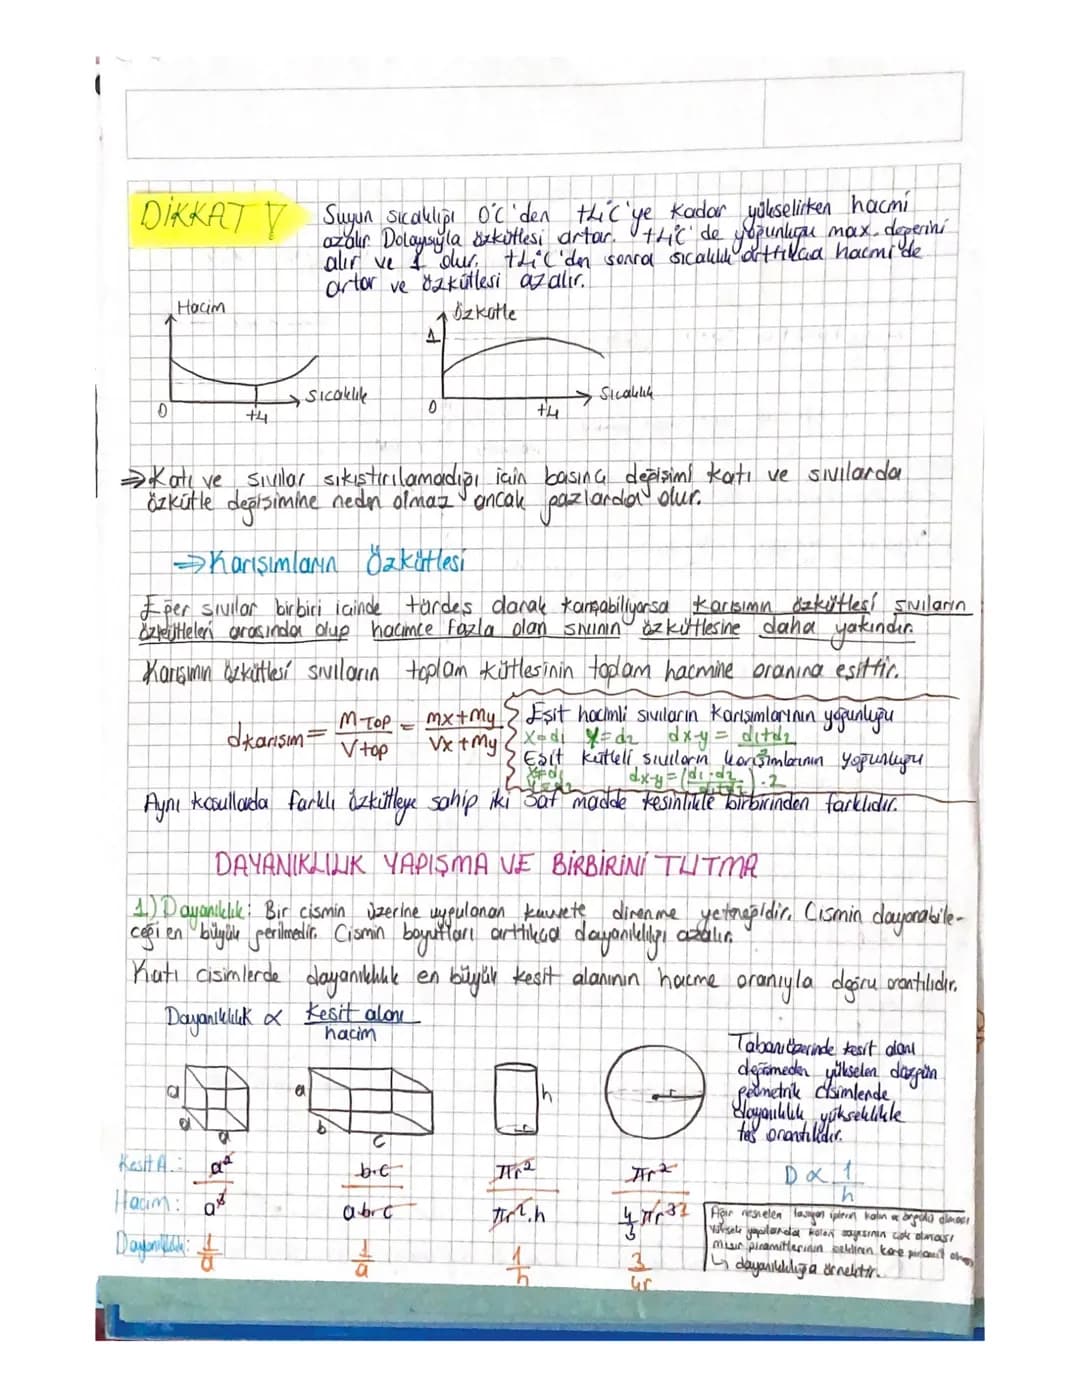 DİKKAT !
Suyun sıcaklığı 0°C'den +4°C'ye kadar yükselirken hacmi
azalır Dolayısıyla özkütlesi artar. +4°C'de yoğunluğu max. değerini
alır ve 1 olur. +4°C'den sonra sıcaklık arttıkça hacmi de
artar ve özkütlesi azalır.
Hacim
Sıcaklık
0
+4
Özkütle
1
Sıcaklık
0
+4
⇒Katı ve sıvılar sıkıştırılamadığı için basınç değişimi katı ve sıvılarda
özkütle değişimine neden olmaz ancak gazlarda olur.
⇒Karışımların Özkütlesi
Eğer sıvılar birbiri içinde türdeş olarak karışabiliyorsa karışımın özkütlesi sıvıların
özkütleleri arasında olup hacimce fazla olan sıvının özkütlesine daha yakındır.
Karışımın özkütlesi sıvıların toplam kütlesinin toplam hacmine oranına eşittir.
dkarışım = M-TOP / Vtop = mx+my / Vx+My
Eşit hacimli sıvıların karışımlarının yoğunluğu
X=d1 Y=d2 dx-y = d1+d2
Eşit kütleli sıvıların karışımlarının yoğunluğu
X=d1
Y=d2
dx-y = (d1.d2 / d1+d2).2
Aynı koşullarda farklı özkütleye sahip iki saf madde kesinlikle birbirinden farklıdır.
DAYANIKLILIK YAPIŞMA VE BİRBİRİNİ TUTMA
1.) Dayanıklılık: Bir cismin üzerine uygulanan kuvvete direnme yeteneğidir. Cismin dayanabile-
ceği en büyük gerilmedir. Cismin boyutları arttıkça dayanıklılığı azalır.
Katı cisimlerde dayanıklılık en büyük kesit alanının hacme oranıyla doğru orantılıdır.
Dayanıklılık ∝ kesit alanı / hacim
a
a
a
a
b
c
h
r
r
Tabanı üzerinde kesit alanı
değişmeden yükselen düzgün
geometrik cisimlerde
dayanıklılık yükseklikle
ters orantılıdır.
D ∝ 1/h
Kesit A.: a² b.c πr² πr²
Hacim: a³ a.b.c πr².h 4/3 πr³
Dayanıklılık: 1/a 1/a 1/h 3/4r
Ağır nesneleri taşıyan iplerin kalın ve örgülü olması
Yüksek yapılarda kolon sayısının çok olması
mısır piramitlerinin şekillerinin kare piramit olması
↳ dayanıklılığa örnektir.